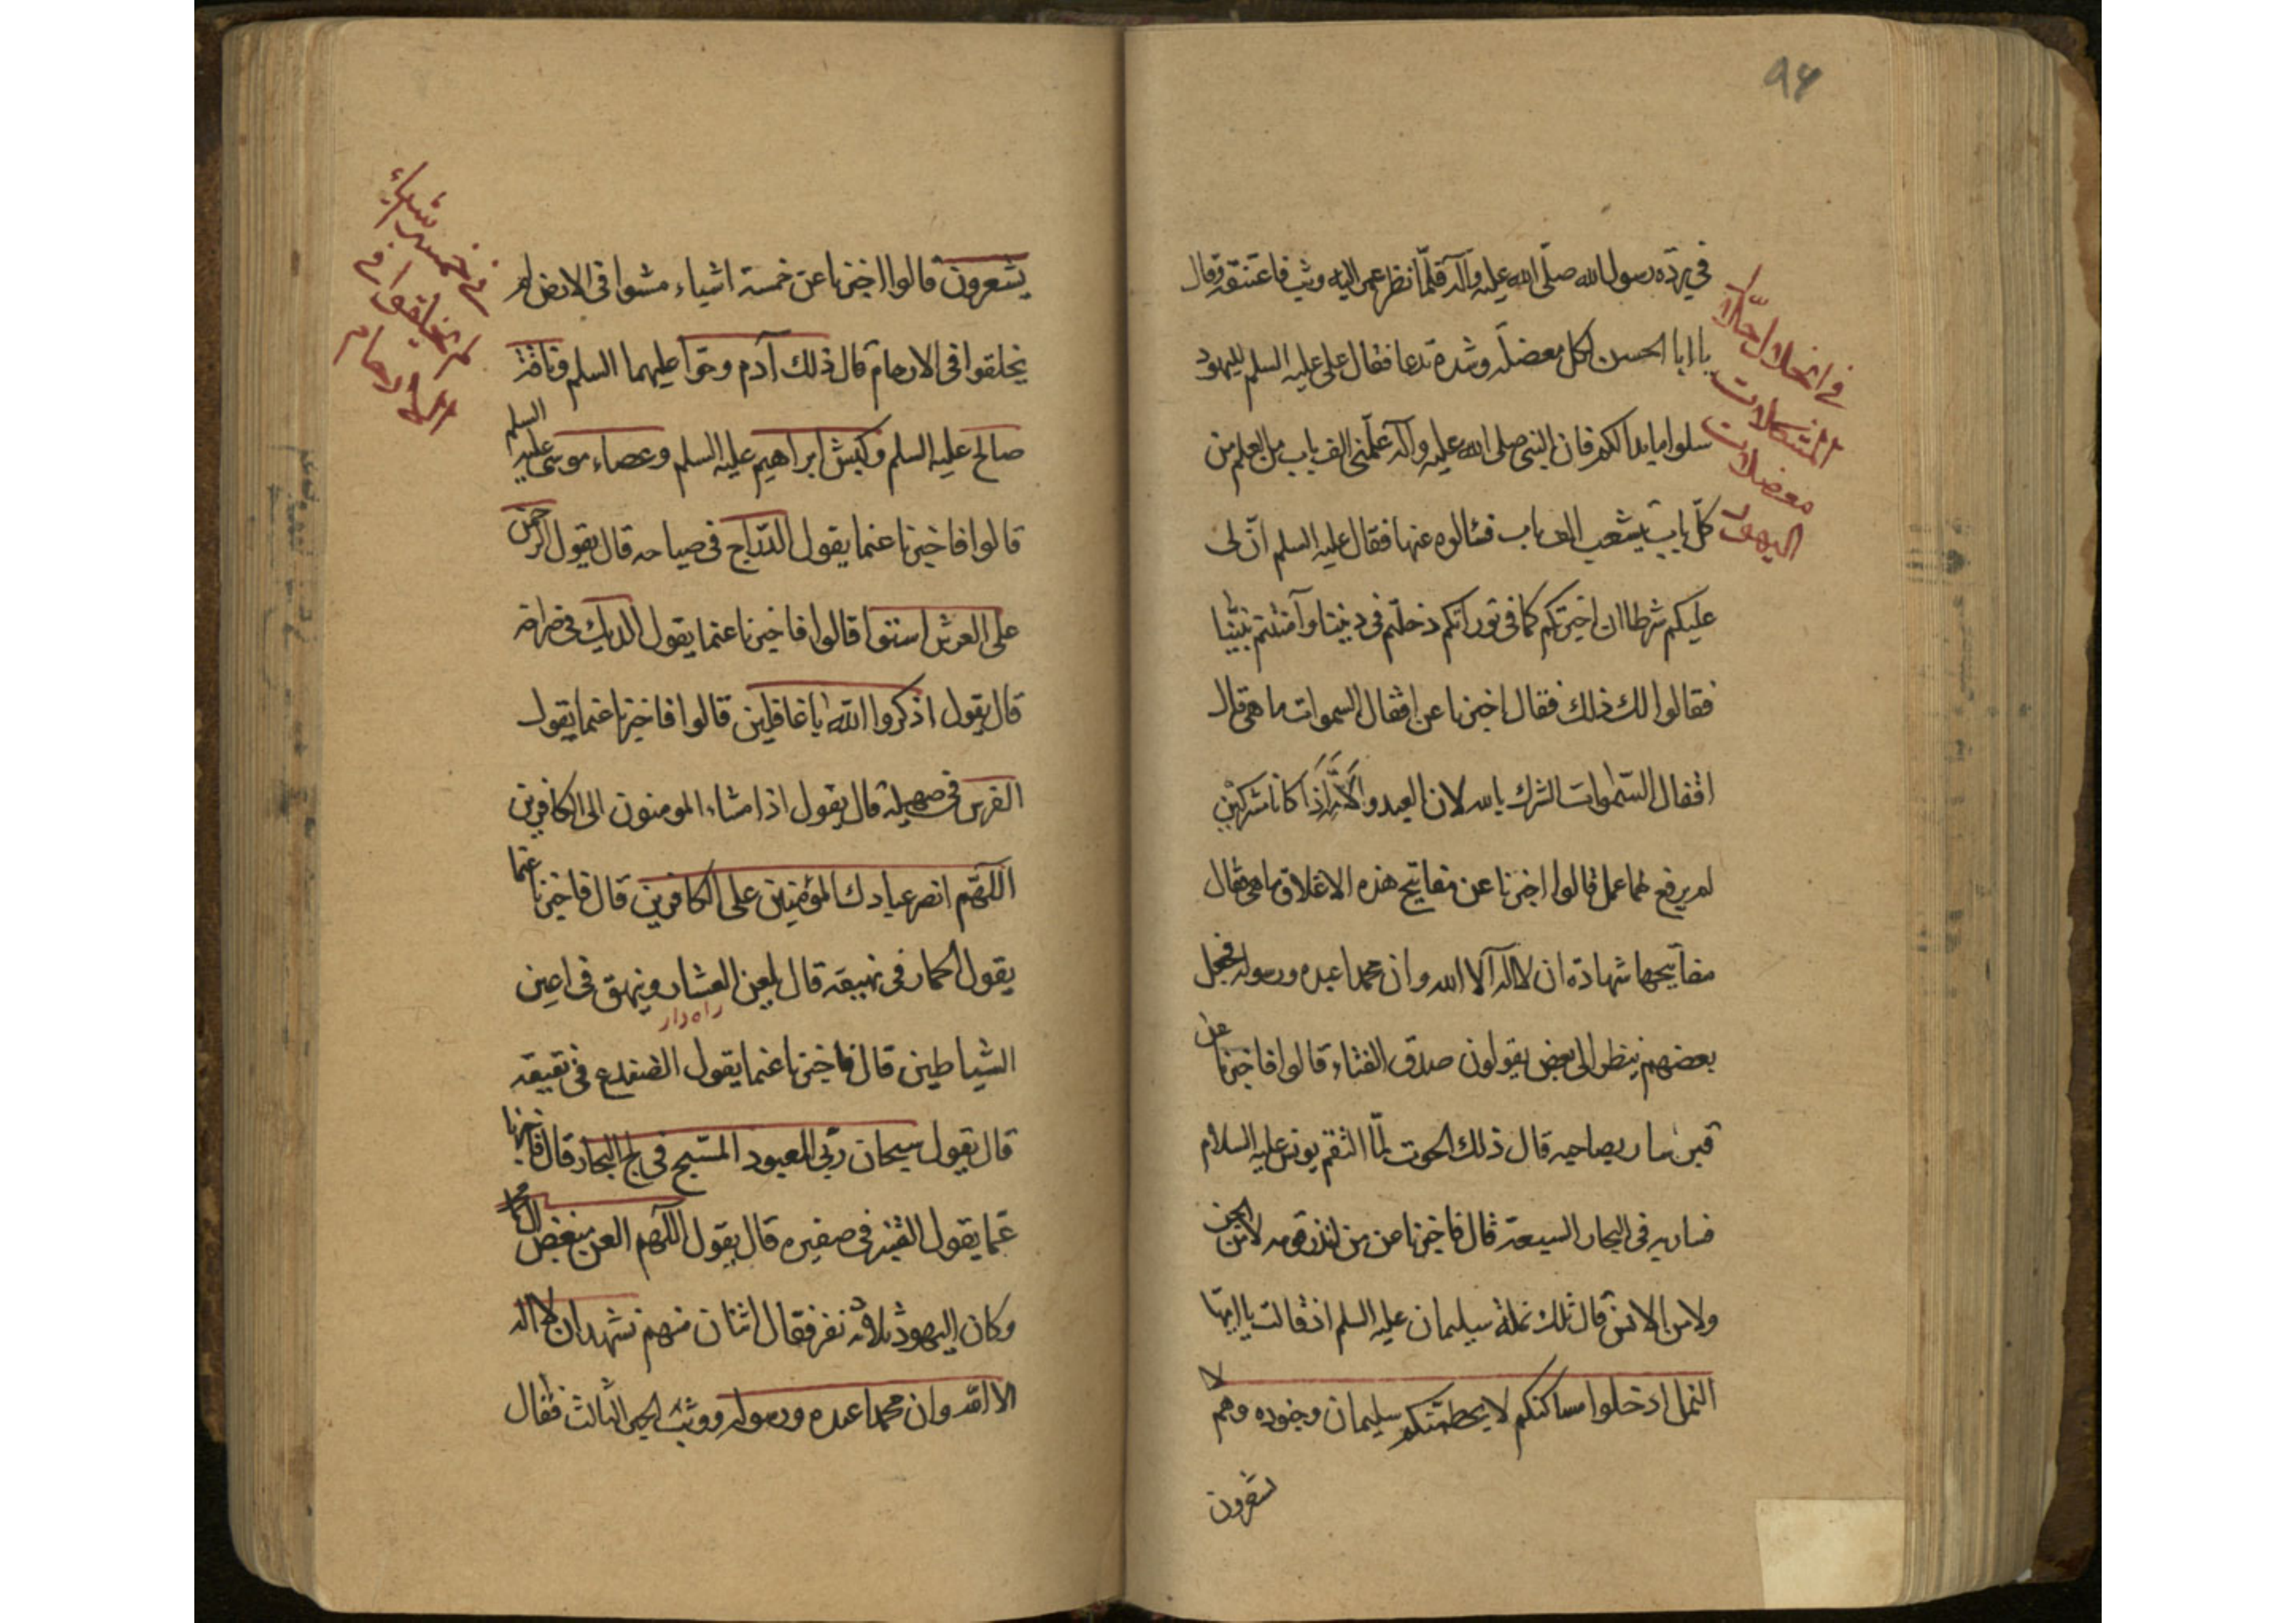 ٩٤
في بردة رسول الله صلّى الله عليه وآله فلمّا نظر عمر اليه وثب فاعتنقه وقال
يا ابا الحسن لكل معضلة وشدة تدعا فقال على عليه السلم لليهود
سلوا ما بدالكم فان النبى صلى الله عليه وآله علّمنى الف باب من العلم من
كلّ باب يتشعب الف باب فسئالوه عنها فقال عليه السلم انّ لى
عليكم شرطا ان اخبرتكم كما فى توراتكم دخلتم فى ديننا وآمنتم بنبيّنا
فقالوا لك ذلك فقال اخبرنا عن اقفال السموات ما هى قال
اقفال السّموات الشرك بالله لان العبد والامة اذا كانا مشركين
لم يرفع لهما عمل قالوا اخبرنا عن مفاتيح هذه الاغلاق ما هى فقال
مفاتيحها شهادة ان لا اله الا الله وان محمدا عبده ورسوله فجعل
بعضهم ينظر الى بعض يقولون صدق الفتاء قالوا فاخبرنا عن
قبر سار بصاحبه قال ذلك الحوت لمّا التقم يونس عليه السلام
فسار به فى البحار السبعة قال فاخبرنا عن من انذر قومه لا من الجن
ولا من الانس قال تلك نملة سيليمان عليه السلم اذ قالت يا ايها
النمل ادخلوا مساكنكم لا يحطمنّكم سليمان وجنوده وهم لا
يشعرون
في انحلال حلّال
المشكلات
معضلات
اليهود
يشعرون قالوا اخبرنا عن خمسة اشياء مشوا فى الارض لم
يخلقوا فى الارحام قال ذلك آدم وحوّا عليهما السلم وناقة
صالح عليه السلم وكبش ابراهيم عليه السلم وعصاء موسى عليه السلم
قالوا فاخبرنا عنما يقول الدّراج فى صياحه قال يقول الرحمن
على العرش استوا قالوا فاخبرنا عنما يقول الديك فى صراخه
قال يقول اذكروا الله يا غافلين قالوا فاخبرنا عنما يقول
الفرس فى صهيله قال يقول اذا مشاء المومنون الى الكافرين
اللّهم انصر عبادك المؤمنين على الكافرين قال فاخبرنا عنما
يقول الحمار فى نهيقه قال يلعن العشار وينهق فى اعين
راه دار
الشياطين قال فاخبرنا عنما يقول الضفدع فى نقيقه
قال يقول سبحان ربّى المعبود المسّبح فى لج البحار قال فاخبرنا
عما يقول القنبر فى صفيره قال يقول اللّهم العن مبغض ال محمد
وكان اليهود ثلاثة نفر فقال اثنان منهم نشهد ان لا اله
الا الله وان محمدا عبده ورسوله ووثب الحبر الثالث فقال
في خمسه اشياء
لم يخلقوا في
الارحام